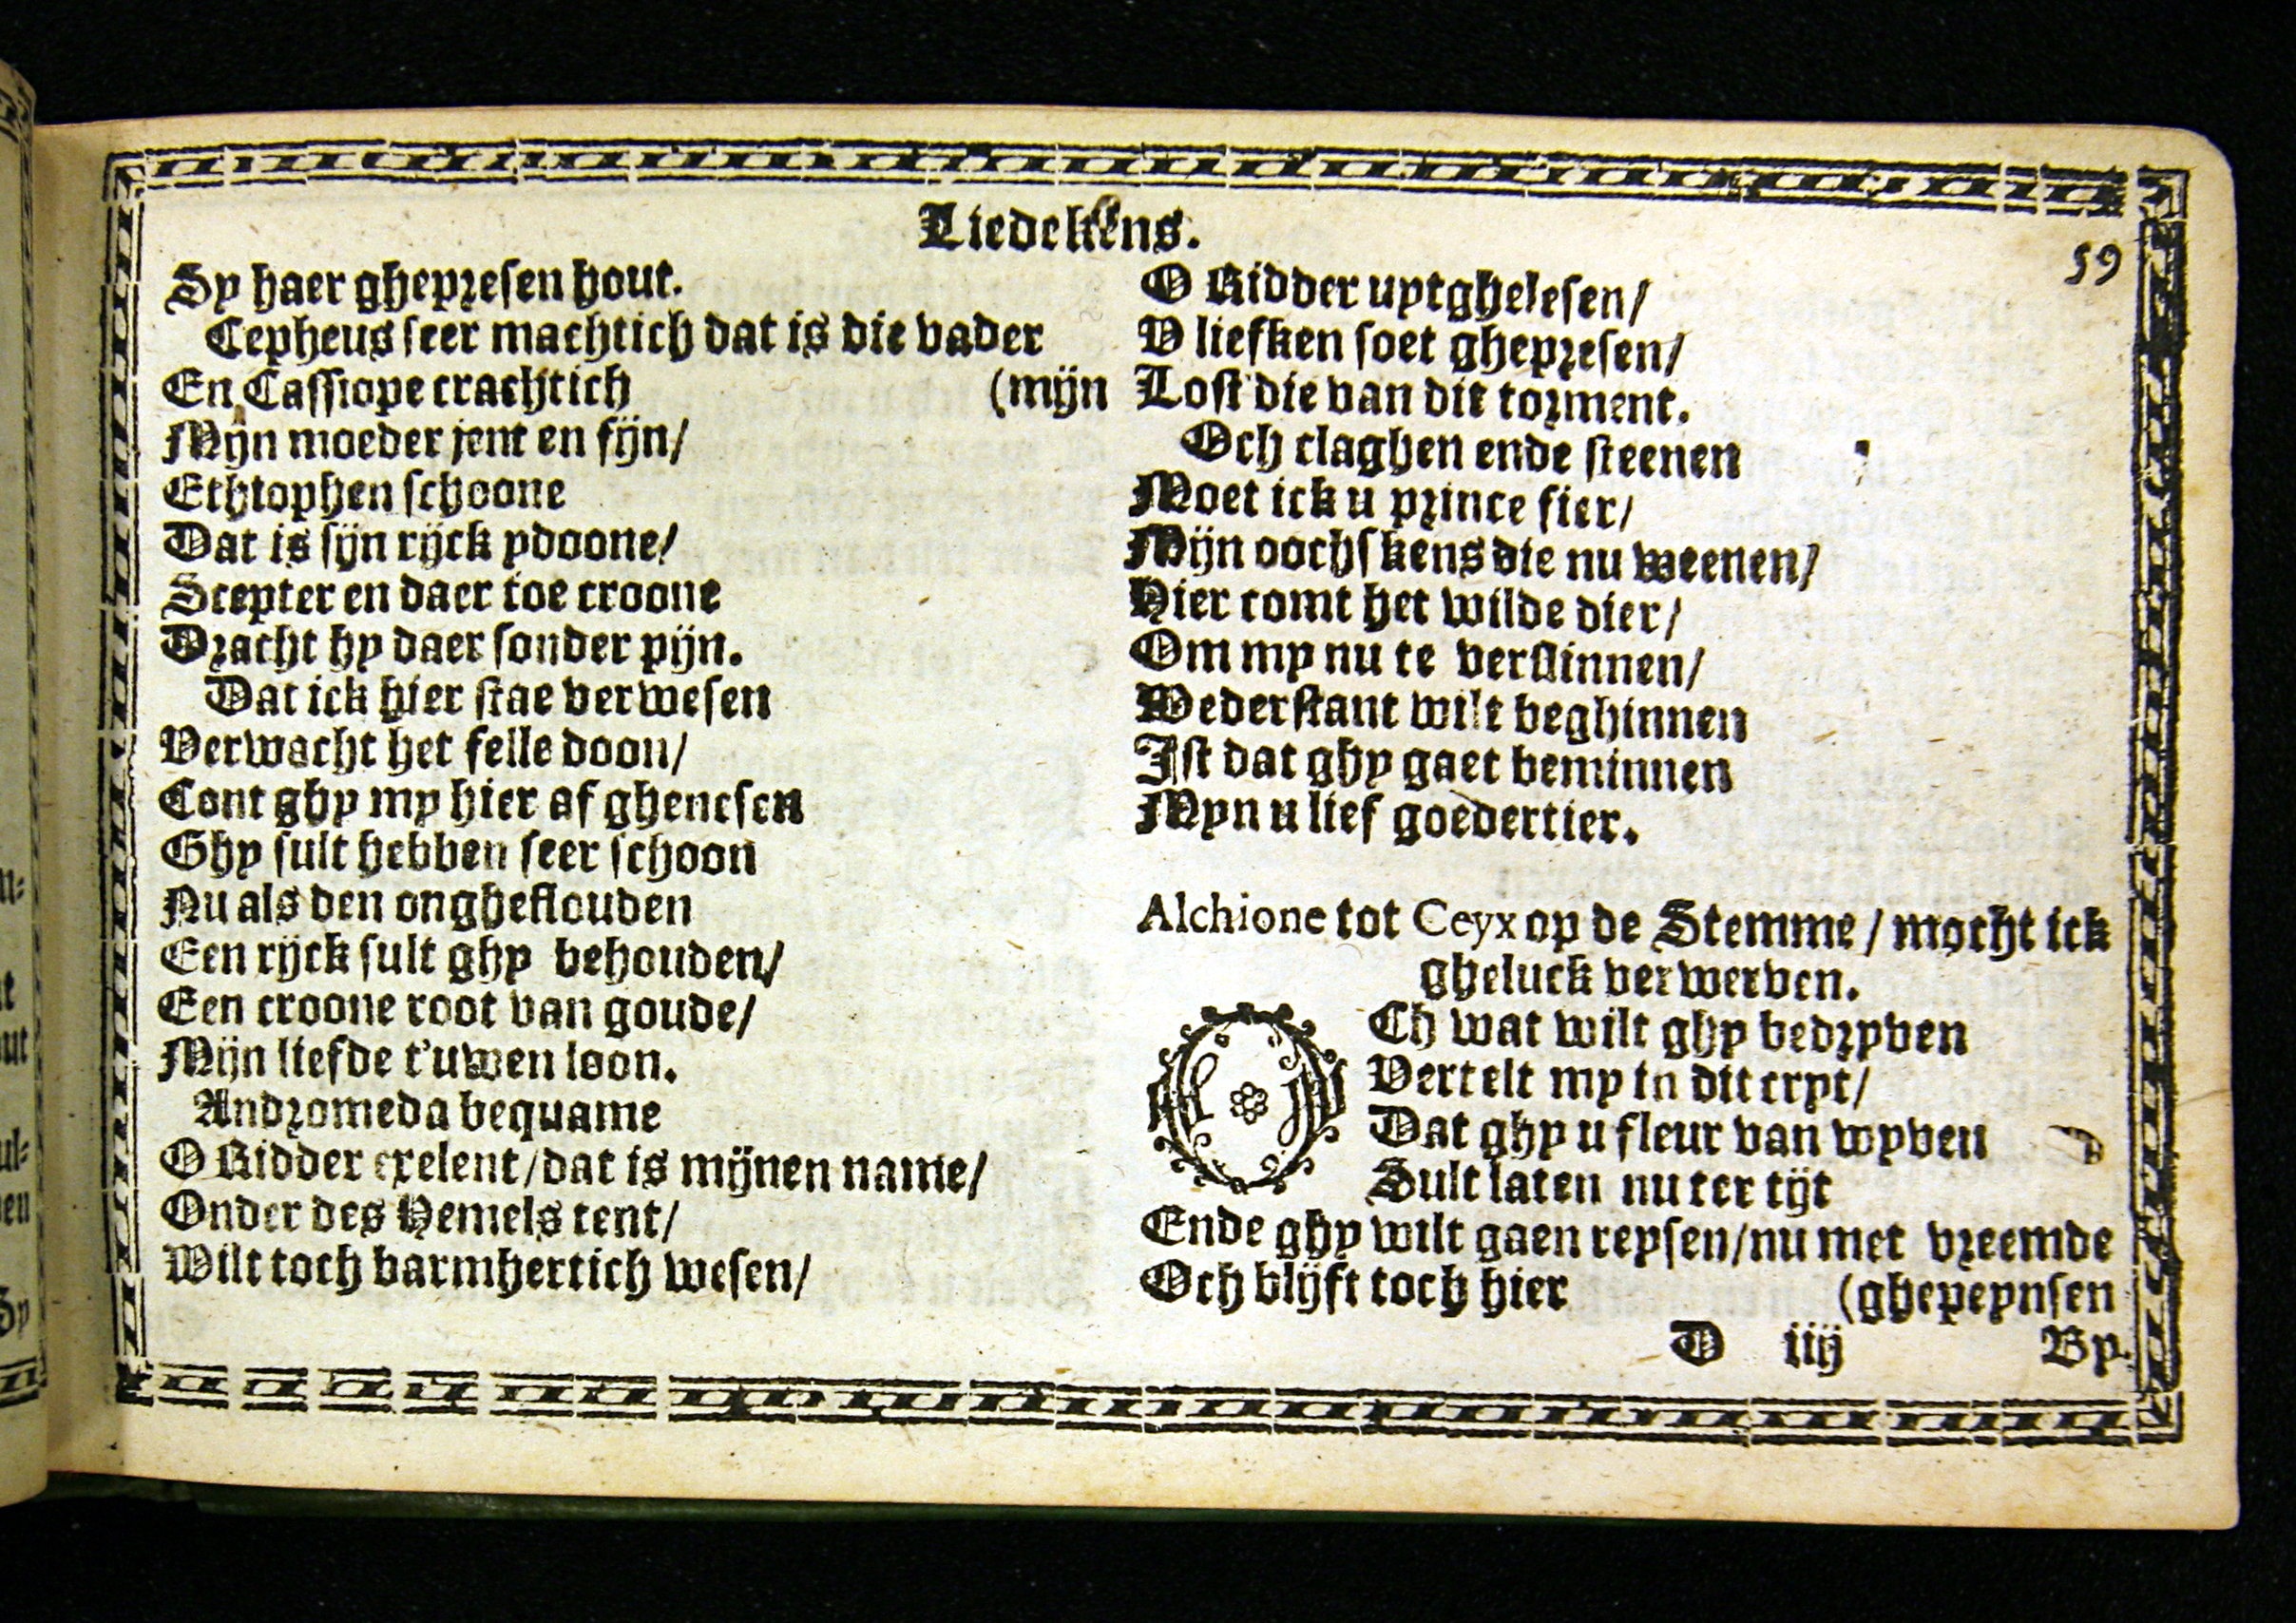 Liedekens.
59
Sy haer ghepresen hout.
Cepheus seer machtich dat is die vader
En Cassiope crachtich (mijn
Mijn moeder jent en fijn/
Ethiophen schoone
Dat is sijn rijck ydoone/
Scepter en daer toe croone
Dracht hy daer sonder pijn.
Dat ick hier stae verwesen
Verwacht het felle doon/
Cont ghy my hier af ghenesen
Ghy sult hebben seer schoon
Nu als den ongheflouden
Een rijck sult ghy behouden/
Een croone root van goude/
Mijn liefde t'uwen loon.
Andromeda bequame
O Ridder exelent/dat is mijnen name/
Onder des Hemels tent/
Wilt toch barmhertich wesen/
O Ridder uytghelesen/
V liefken soet ghepresen/
Lost die van dit torment.
Och claghen ende steenen
Moet ick u prince fier/
Mijn oochskens die nu weenen/
Hier comt het wilde dier/
Om my nu te verslinnen/
Wederstant wilt beghinnen
Ist dat ghy gaet beminnen
Myn u lief goedertier.
Alchione tot Ceyx op de Stemme / mocht ick
gheluck verwerven.
OCh wat wilt ghy bedryven
Vertelt my in dit cryt/
Dat ghy u fleur van wyven
Sult laten nu ter tijt
Ende ghy wilt gaen reysen/nu met vreemde
Och blijft toch hier (ghepeynsen
D iiij By